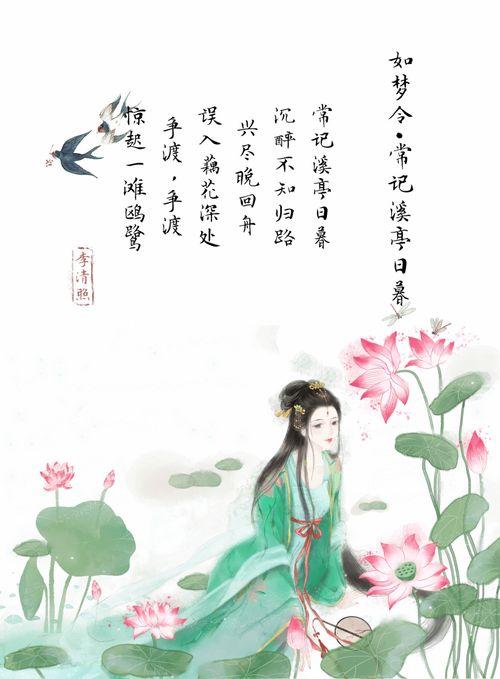 如梦令·常记溪亭日暮
常记溪亭日暮
沉醉不知归路
兴尽晚回舟
误入藕花深处
争渡,争渡
惊起一滩鸥鹭
李清照